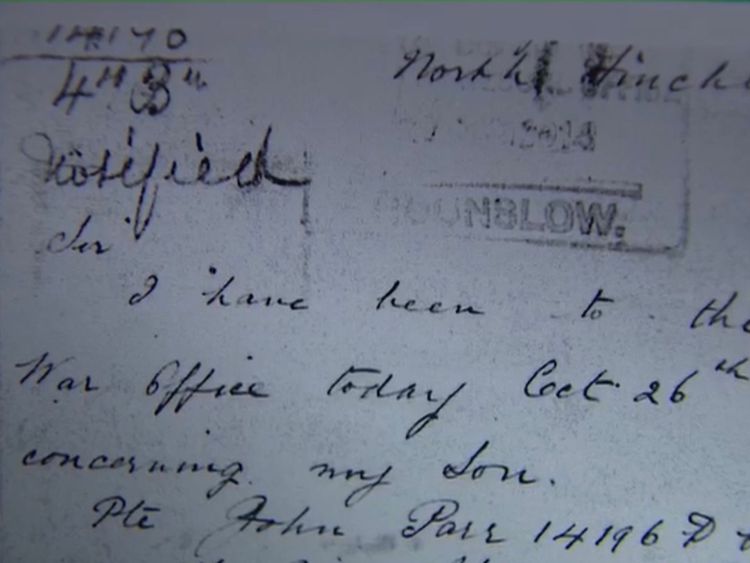 14170
4th Bn
North Finch
1914
HOUNSLOW.
Notified
Sir
I have been to the
War Office today Oct 26th
concerning my Son.
Pte John Parr 14196